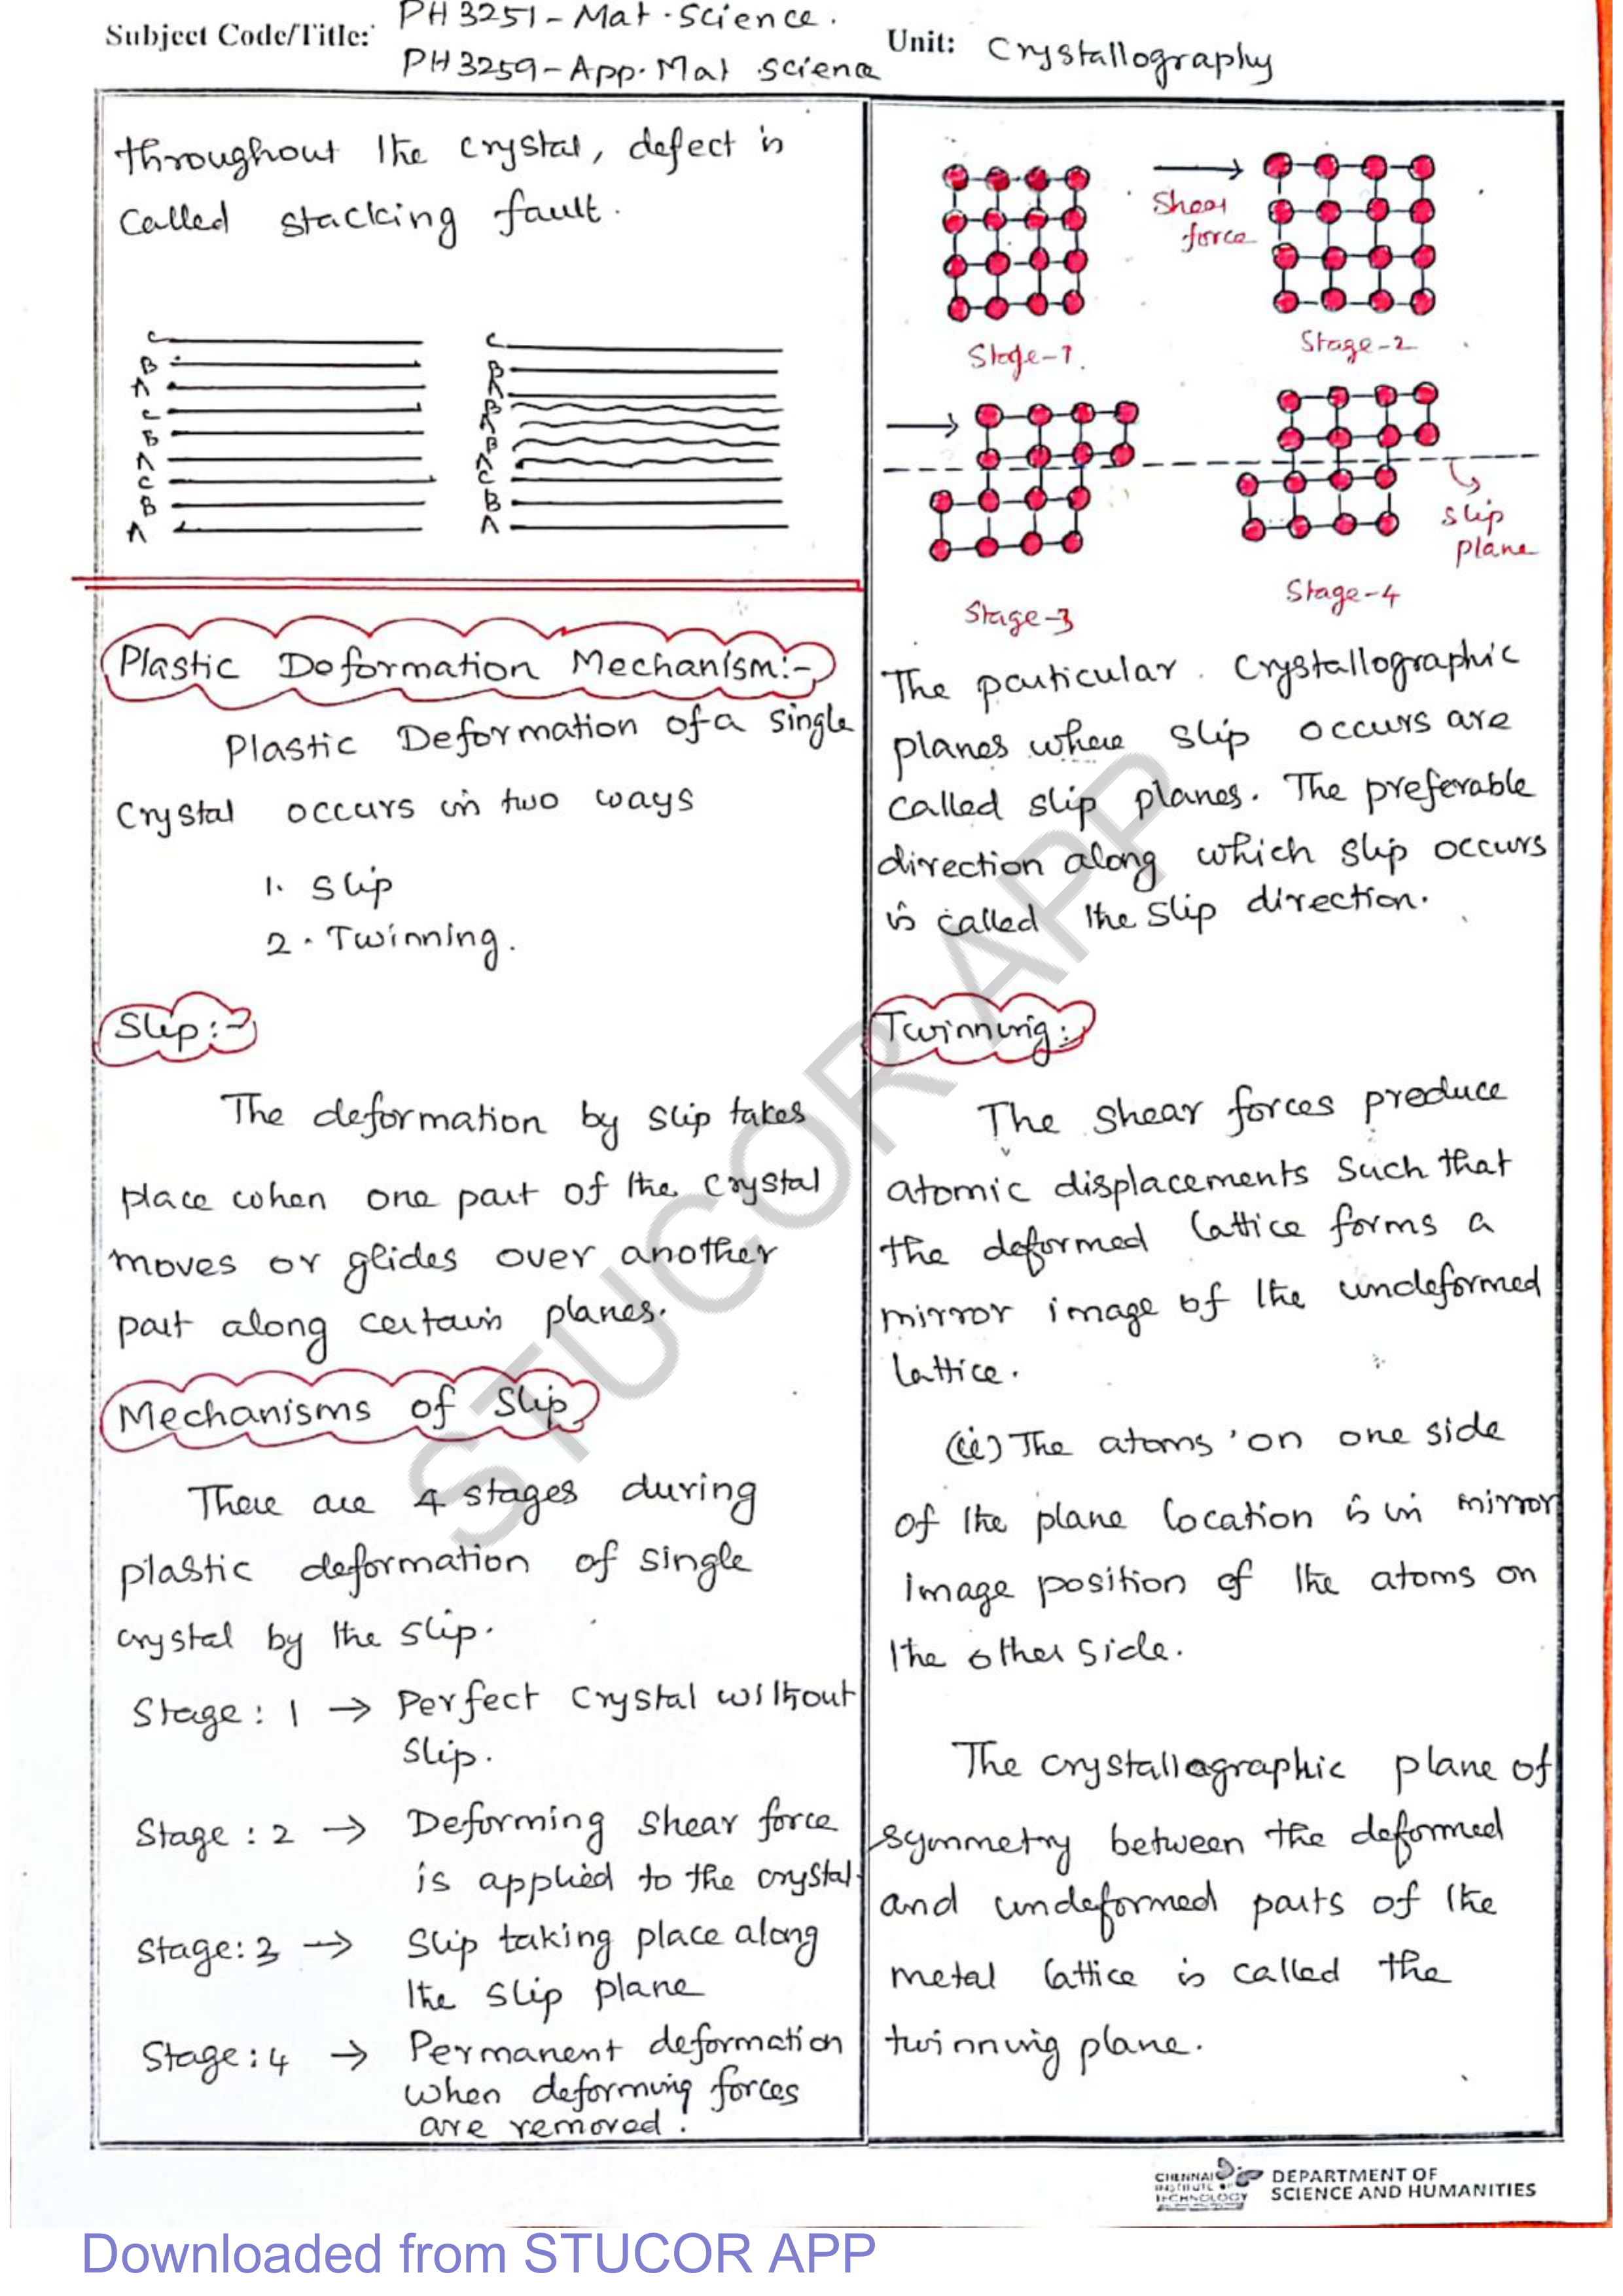 Subject Code/Title: PH 3251 - Mat. Science.
PH 3259 - App. Mat science
Unit: Crystallography
throughout the crystal, defect is
called stacking fault.
C
B
A
C
B
A
C
B
A
C
B
A
B
A
B
A
C
B
A
Plastic Deformation Mechanism:-
Plastic Deformation of a single
crystal occurs in two ways
1. Slip
2. Twinning.
Slip:-
The deformation by slip takes
place when one part of the crystal
moves or glides over another
part along certain planes.
Mechanisms of Slip
There are 4 stages during
plastic deformation of single
crystal by the slip.
Stage: 1 → Perfect crystal without
slip.
Stage: 2 → Deforming shear force
is applied to the crystal.
Stage: 3 → Slip taking place along
the slip plane
Stage: 4 → Permanent deformation
when deforming forces
are removed.
Shear
force
Stage-1.
Stage-2
slip
plane
Stage-3
Stage-4
The particular crystallographic
planes where slip occurs are
called slip planes. The preferable
direction along which slip occurs
is called the slip direction.
Twinning:
The shear forces produce
atomic displacements such that
the deformed lattice forms a
mirror image of the undeformed
lattice.
(ii) The atoms on one side
of the plane location is in mirror
image position of the atoms on
the other side.
The crystallagraphic plane of
symmetry between the deformed
and undeformed parts of the
metal lattice is called the
twinning plane.
STUCOR APP
CHENNAI
INSTITUTE OF
TECHNOLOGY
DEPARTMENT OF
SCIENCE AND HUMANITIES
Downloaded from STUCOR APP